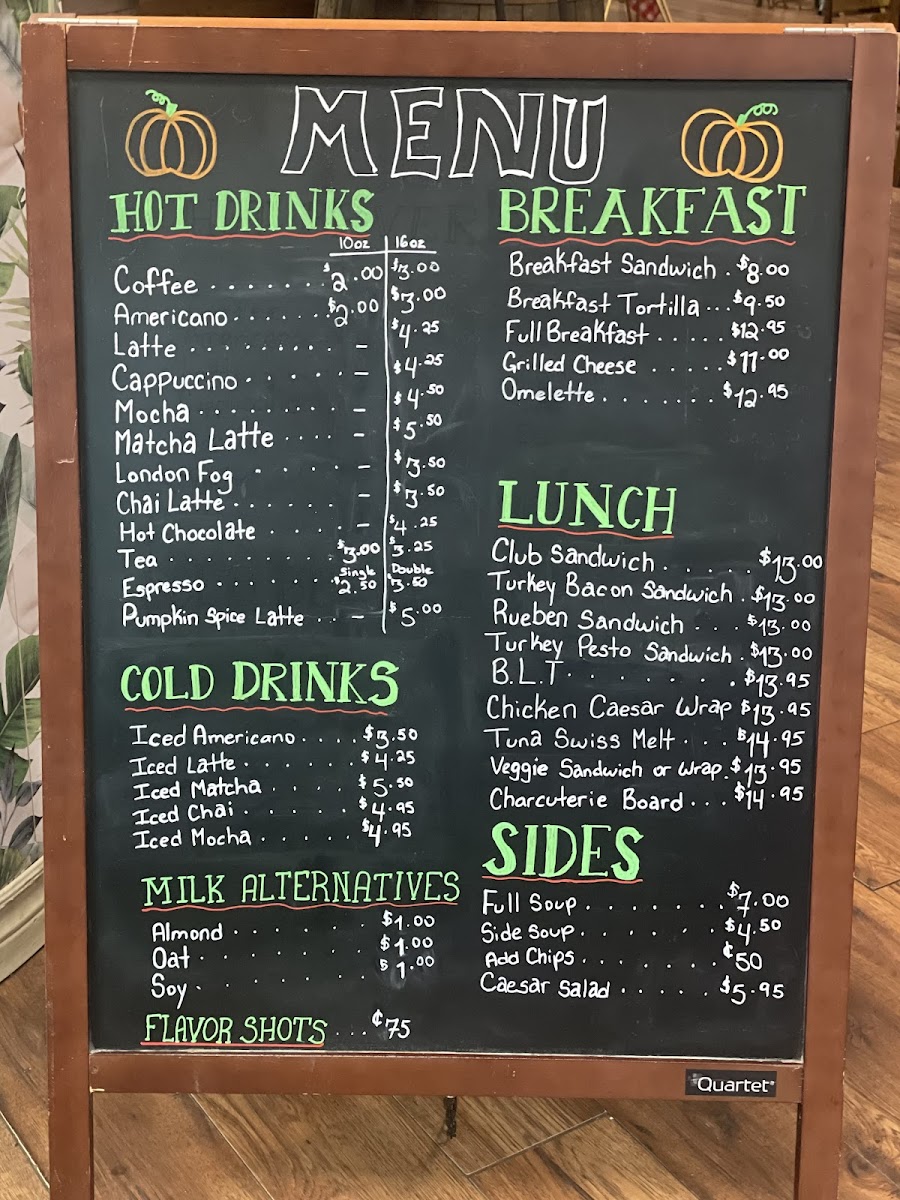 MENU
HOT DRINKS
10oz 16oz
Coffee . . . . . . . $2.00 $3.00
Americano . . . . . . $2.00 $3.00
Latte . . . . . . . . . – $4.25
Cappuccino . . . . . . – $4.25
Mocha . . . . . . . . . – $4.50
Matcha Latte . . . . – $5.50
London Fog . . . . . – $3.50
Chai Latte . . . . . . – $3.50
Hot Chocolate . . . . – $4.25
Tea . . . . . . . . . $3.00 $3.25
Single Double
Espresso . . . . . . $2.50 $3.50
Pumpkin Spice Latte . . – $5.00
COLD DRINKS
Iced Americano . . . . $3.50
Iced Latte . . . . . . $4.25
Iced Matcha . . . . . $5.50
Iced Chai . . . . . . $4.95
Iced Mocha . . . . . $4.95
MILK ALTERNATIVES
Almond . . . . . . . $1.00
Oat . . . . . . . . . $1.00
Soy . . . . . . . . . $1.00
FLAVOR SHOTS . . . ¢75
BREAKFAST
Breakfast Sandwich . $8.00
Breakfast Tortilla . . . $9.50
Full Breakfast . . . . . $12.95
Grilled Cheese . . . . . $11.00
Omelette . . . . . . . $12.95
LUNCH
Club Sandwich . . . . . $13.00
Turkey Bacon Sandwich . $13.00
Rueben Sandwich . . . $13.00
Turkey Pesto Sandwich . $13.00
B.L.T . . . . . . . . $13.95
Chicken Caesar Wrap $13.95
Tuna Swiss Melt . . . $14.95
Veggie Sandwich or Wrap . $13.95
Charcuterie Board . . . $14.95
SIDES
Full Soup . . . . . . . $7.00
Side Soup . . . . . . . $4.50
Add Chips . . . . . . . ¢50
Caesar Salad . . . . . $5.95
Quartet